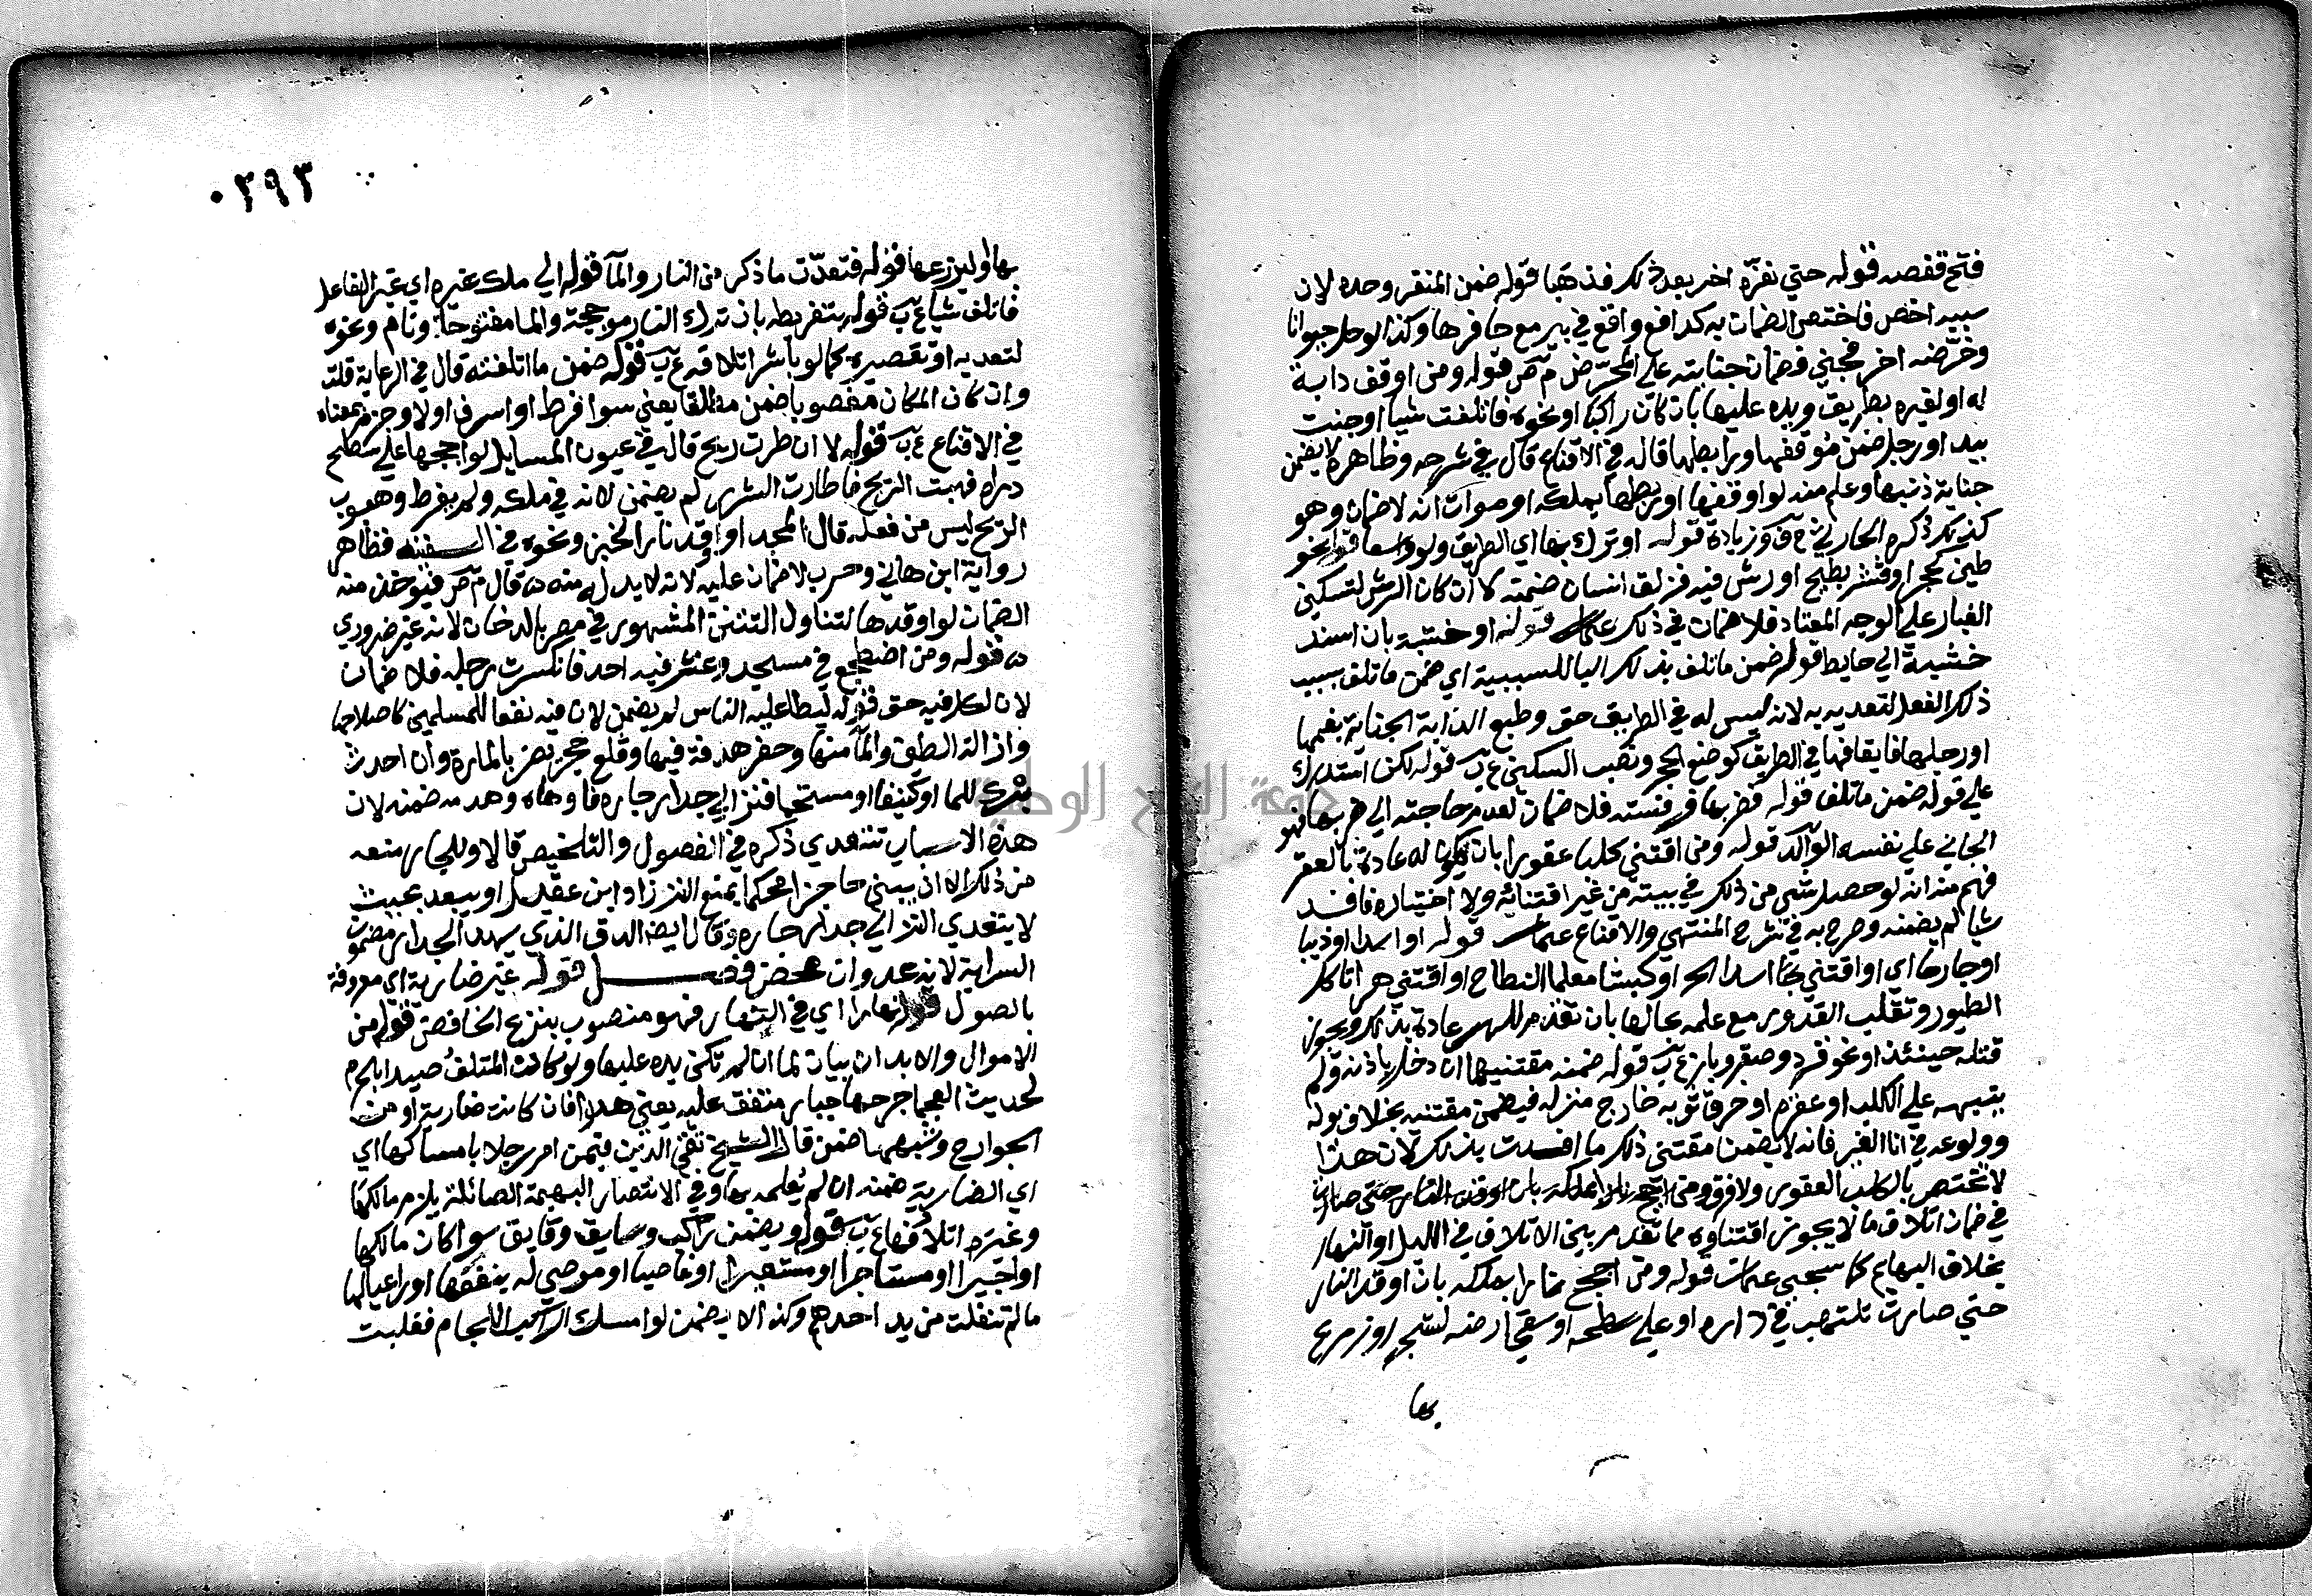 فتح قفصه قوله حتي نفره اخر بعد ذلك فذهبا قوله ضمن المنفر وحده لان
سببه اخص فاختص الضمان به كدافع واقع في بير مع حافرها وكذا لو حل حيوانا
وحرضه اخر فجني فضمان جنايته علي المحرض م ص قوله ومن اوقف دابة
له او لغيره بطريق ويده عليها بان كان راكبا او نحوه فاتلفت شيا او جنت
بيد او رجل ضمن موقفها ورابطها قاله في الاقناع قال في شرحه وظاهره لا يضمن
جناية ذنبها وعلم منه لو اوقفها او ربطها بملكه او موات انه لا ضمان وهو
كذلك ذكره الحارثي ع ن وزيادة قوله او ترك بها اي الطريق ولو واسعا قوله نحو
طين كحجر او قشر بطيخ او رش فيه فزلق انسان ضمنه لا ان كان الرش لتسكين
الغبار علي الوجه المعتاد فلا ضمان في ذلك قوله او خشبة بان اسند
خشبة الي حايط قوله ضمن ما تلف بذلك البا للسببية اي ضمن ما تلف بسبب
ذلك الفعل لتعديه به لانه ليس له في الطريق حق وطبع الدابة الجناية بفمها
او رجلها فايقافها في الطريق كوضع الحجر ونصب السكين ع ب قوله لكن استدرك
علي قوله ضمن ما تلف قوله فضربها فرفسته فلا ضمان لعدم حاجته الي ضربها فهو
الجاني علي نفسه الوالد قوله ومن اقتني كلبا عقورا بان يكون له عادة بالعقر
فهم منه انه لو حصل شي من ذلك في بيته من غير اقتنائه ولا اختياره فافسد
شيا لم يضمنه وصرح به في شرح المنتهي والاقناع قوله او اسدا او ذيبا
او جارحا اي او اقتني اسدا الخ او كبشا معلما النطاح او اقتني هرا تاكل
الطيور وتقلب القدور مع علمه بحالها بان تقدم للهر عادة بذلك ويجوز
قتله حينئذ او نحو قرد وصقر وباز ع ب قوله ضمنه مقتنيها ان دخل باذنه ولم
ينبهه علي الكلب او عقره او خرق ثوبه خارج منزله فيضمن مقتنيه بخلاف بوله
وولوغه في انا الغير فانه لا يضمن مقتني ذلك ما افسدت بذلك لان هذا
لا يختص بالكلب العقور ولا فرق
في ضمان اتلاف ما لا يجوز اقتناوه مما تقدم بين الاتلاف في الليل او النهار
بخلاف البهايم كما سيجي قوله ومن اجج نارا بملكه بان اوقد النار
حتي صارت تلتهب في داره او علي سطحه او سقي ارضه لشجر او زرع
بها
٠٣٩٣
بها او ليزرعها قوله فتعدت ما ذكر من النار والما قوله الي ملك غيره اي غير الفاعل
فاتلف شيا ع ب قوله بتفريطه بان ترك النار موججة والما مفتوحا ونام ونحوه
لتعديه او تقصيره كما لو باشر اتلافه ع ب قوله ضمن ما اتلفته قال في الرعاية قلت
وان كان المكان مغصوبا ضمن مطلقا يعني سوا فرط او اسرف او لا وجزم بمعناه
في الاقناع ع ب قوله لا ان طرت ريح قال في عيون المسايل لو اججها علي سطح
داره فهبت الريح فاطارت الشرر لم يضمن لانه في ملكه ولم يفرط وهبوب
الريح ليس من فعله قال المجد او اوقد نارا لخبز ونحوه في السفينة فظاهر
رواية ابن هاني وحرب لا ضمان عليه لانه لا بد له منه قال م ص فيوخذ منه
الضمان لو اوقدها لتناول التتن المشهور في مصر بالدخان لانه غير ضروري
قوله ومن اضطجع في مسجد وعثر فيه احد فانكسرت رجله فلا ضمان
لان لكل فيه حق قوله ليطا عليه الناس لم يضمن لان فيه نفعا للمسلمين كاصلاحها
وازالة الطين والما منها وحفر هدفة فيها وقلع حجر يضر بالمارة وان احدث
بركة للما او كنيفا او مستحما فنز الي جدار جاره فاوهاه وهدمه ضمنه لان
هذه الاسباب تتعدي ذكره في الفصول والتلخيص قالا وللجار منعه
من ذلك الا ان يبني حاجزا محكما يمنع النز زاد ابن عقيل او يبعد بحيث
لا يتعدي النز الي جدار جاره وقال ايضا الدق الذي يهد الجدار مضمون
السراية لانه عدوان محض فصل قوله غير ضارية اي معروفة
بالصول قوله نهارا اي في النهار فهو منصوب بنزع الخافض قوله من
الاموال والابدان بيان لما ان لم تكن يده عليها ولو كانت المتلف صيدا بالحرم
لحديث العجما جرحها جبار متفق عليه يعني هدرا فان كانت ضارية او من
الجوارح وشبهها ضمن قال الشيخ تقي الدين فيمن امر رجلا بامساكها اي
اي الضارية ضمنه ان لم يعلمه بها وفي الانتصار البهيمة الصائلة يلزم مالكها
وغيره اتلافها ع ب قوله ويضمن راكب وسايق وقايد سوا كان مالكها
او اجيرا او مستاجرا او مستعيرا او غاصبا او موصي له بنفعها او راعيا لها
ما لم تنفلت من يد احدهم وكذا لا يضمن لو امسك الراكب اللجام فغلبت